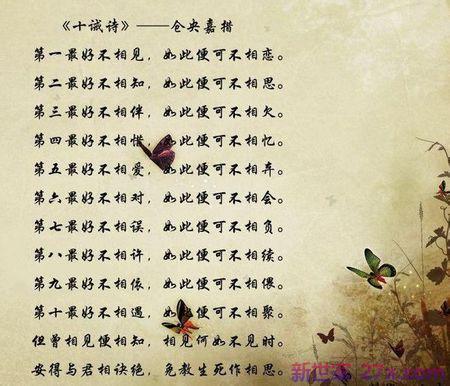 《十诫诗》——仓央嘉措
第一最好不相见，如此便可不相恋。
第二最好不相知，如此便可不相思。
第三最好不相伴，如此便可不相欠。
第四最好不相惜，如此便可不相忆。
第五最好不相爱，如此便可不相弃。
第六最好不相对，如此便可不相会。
第七最好不相误，如此便可不相负。
第八最好不相许，如此便可不相续。
第九最好不相依，如此便可不相偎。
第十最好不相遇，如此便可不相聚。
但曾相见便相知，相见何如不见时。
安得与君相诀绝，免教生死作相思。